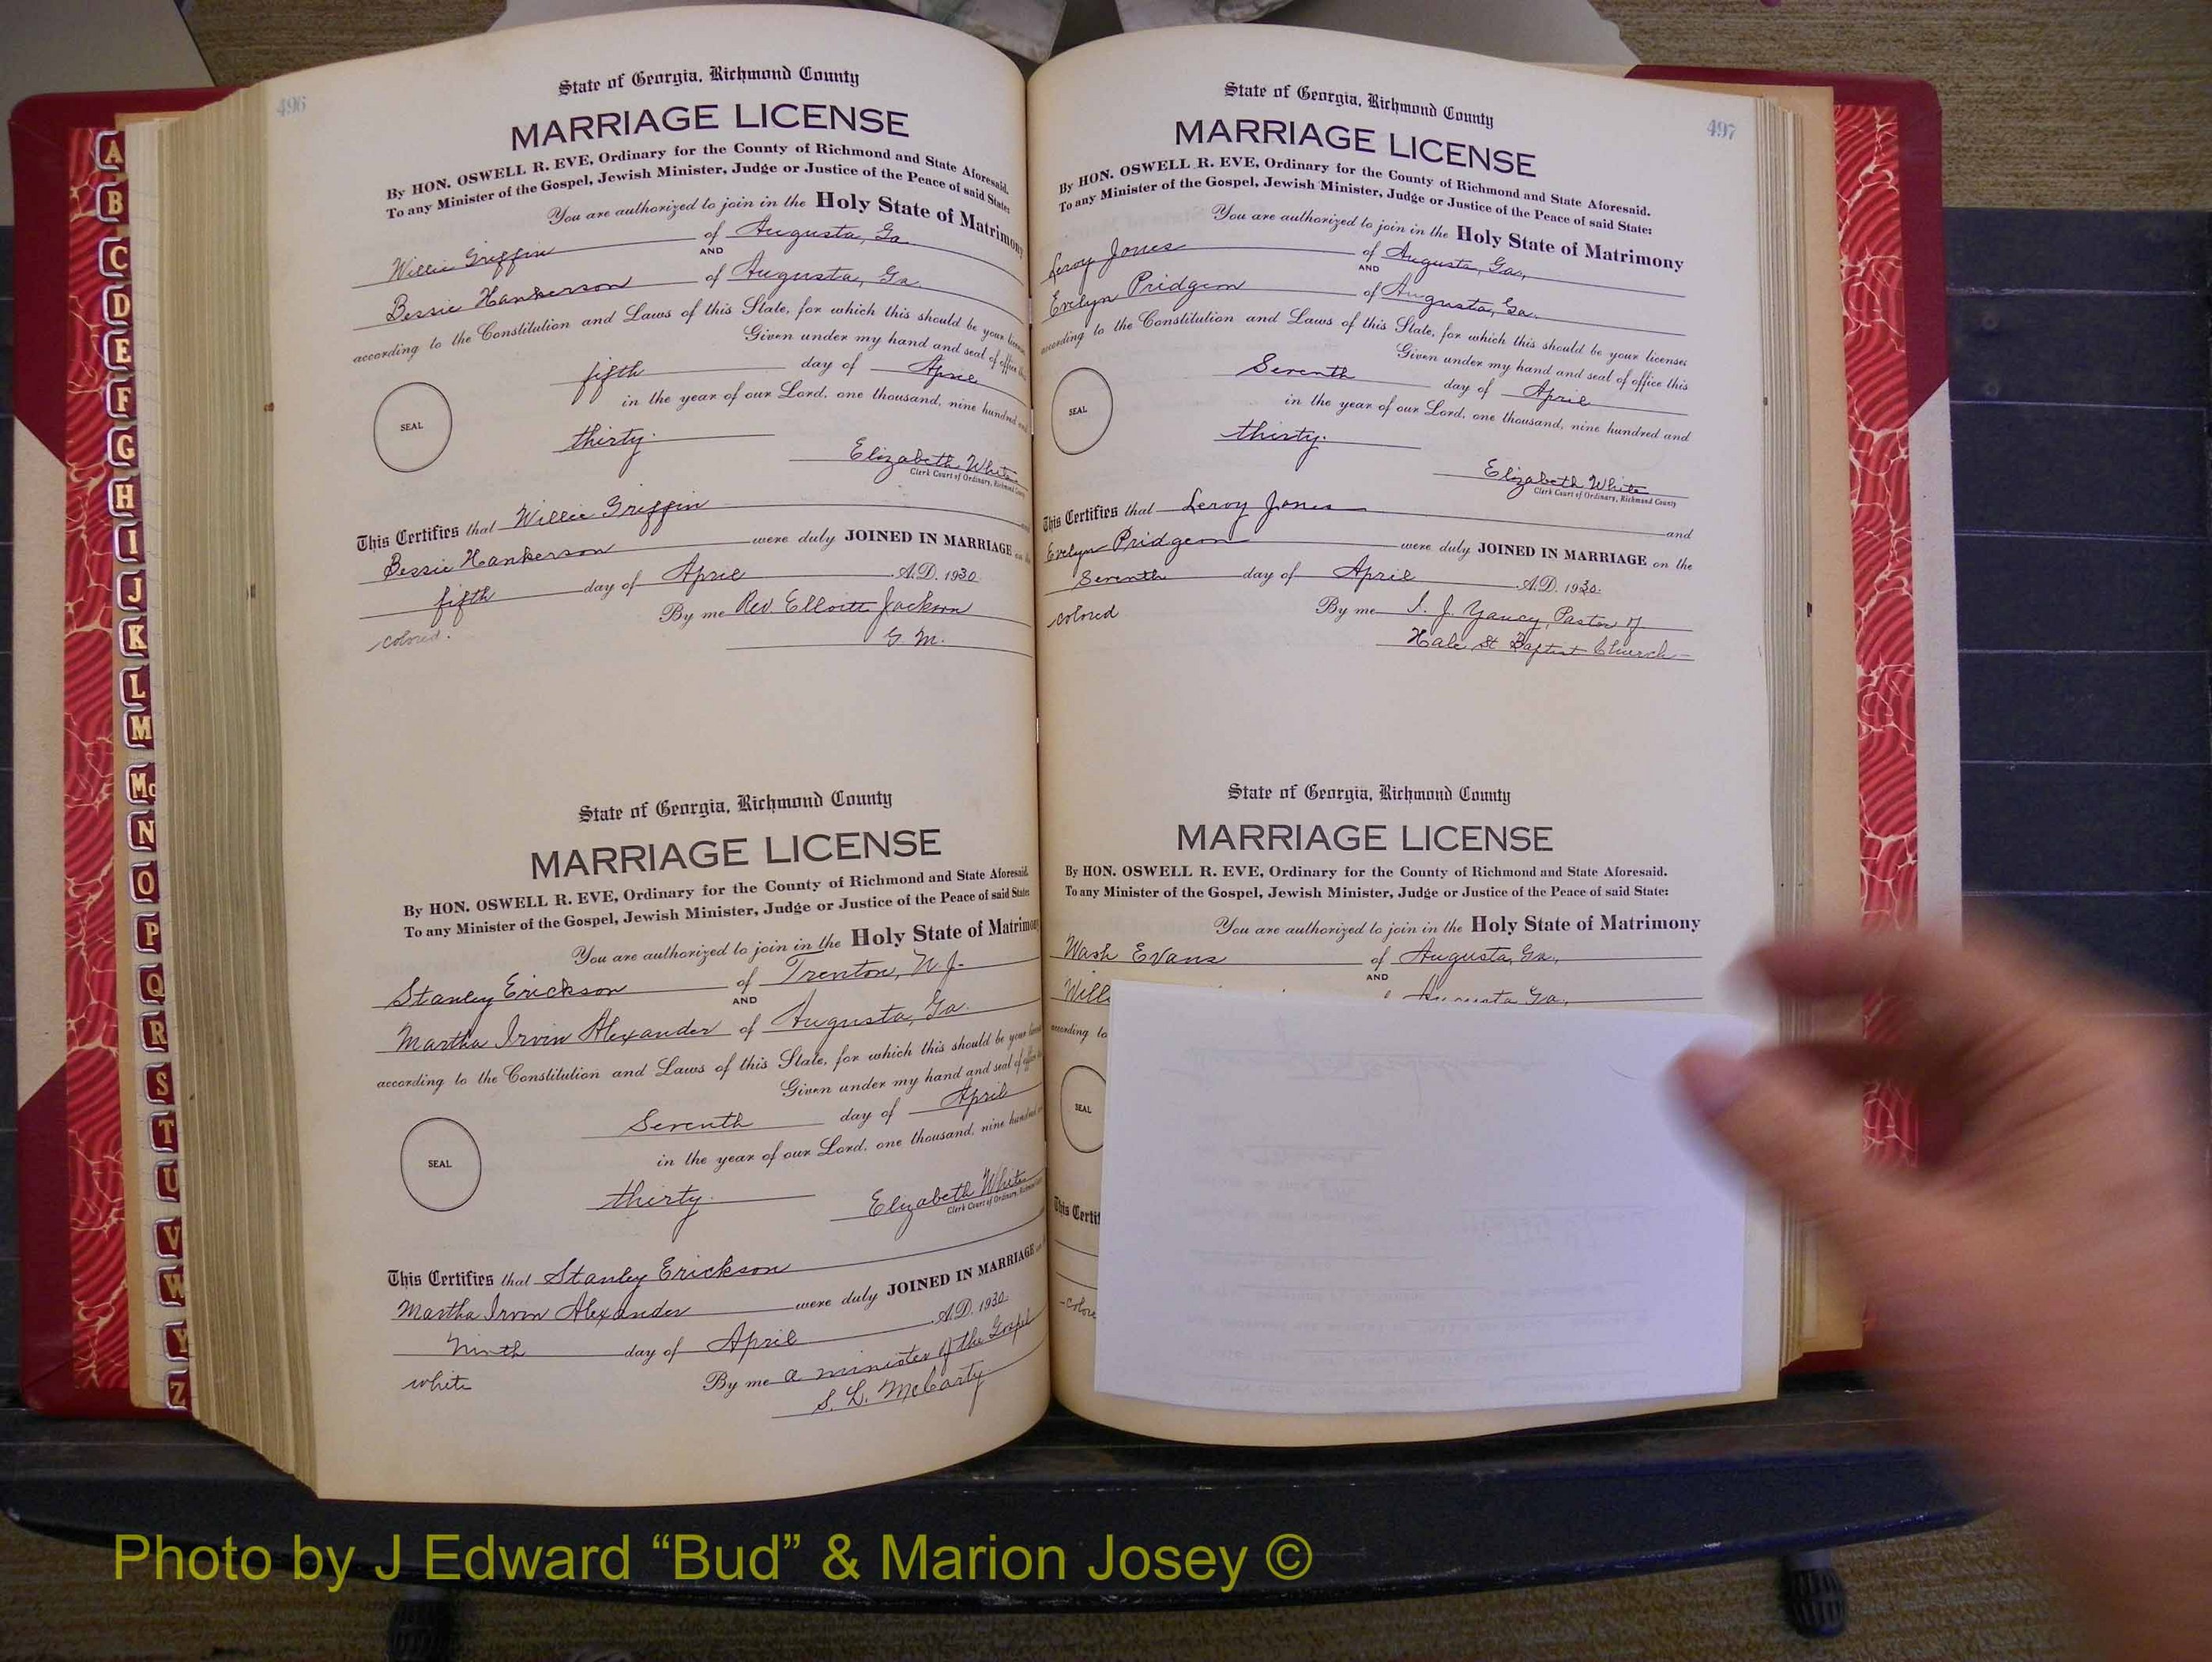 A
B
C
D
E
F
G
H
I
J
K
L
M
Mc
N
O
P
Q
R
S
T
U
V
W
Y
Z
496
State of Georgia, Richmond County
MARRIAGE LICENSE
By HON. OSWELL R. EVE, Ordinary for the County of Richmond and State Aforesaid.
To any Minister of the Gospel, Jewish Minister, Judge or Justice of the Peace of said State:
You are authorized to join in the Holy State of Matrimony
Willie Griffin of Augusta, Ga.
AND
Bessie Hankerson of Augusta, Ga.
according to the Constitution and Laws of this State, for which this should be your
Given under my hand and seal of office
fifth day of April
in the year of our Lord, one thousand, nine hundred
SEAL
thirty.
Elizabeth White
Clerk Court of Ordinary, Richmond County
This Certifies that Willie Griffin
Bessie Hankerson were duly JOINED IN MARRIAGE
fifth day of April A.D. 1930.
colored.
By me Rev. Elloitt Jackson
G. M.
State of Georgia, Richmond County
MARRIAGE LICENSE
By HON. OSWELL R. EVE, Ordinary for the County of Richmond and State Aforesaid.
To any Minister of the Gospel, Jewish Minister, Judge or Justice of the Peace of said State:
You are authorized to join in the Holy State of Matrimony
Stanley Erickson of Trenton, N. J.
AND
Martha Irvin Alexander of Augusta, Ga.
according to the Constitution and Laws of this State, for which this should be your
Given under my hand and seal of office
Seventh day of April
in the year of our Lord, one thousand, nine hundred
SEAL
thirty.
Elizabeth White
Clerk Court of Ordinary, Richmond
This Certifies that Stanley Erickson
Martha Irvin Alexander were duly JOINED IN MARRIAGE
Ninth day of April A.D. 1930.
white
By me a minister of the Gospel
S. L. McCarty
497
State of Georgia, Richmond County
MARRIAGE LICENSE
By HON. OSWELL R. EVE, Ordinary for the County of Richmond and State Aforesaid.
To any Minister of the Gospel, Jewish Minister, Judge or Justice of the Peace of said State:
You are authorized to join in the Holy State of Matrimony
Leroy Jones of Augusta, Ga.,
AND
Evelyn Pridgeon of Augusta, Ga.
according to the Constitution and Laws of this State, for which this should be your licenses
Given under my hand and seal of office this
Seventh day of April
in the year of our Lord, one thousand, nine hundred and
SEAL
thirty.
Elizabeth White
Clerk Court of Ordinary, Richmond County
This Certifies that Leroy Jones and
Evelyn Pridgeon were duly JOINED IN MARRIAGE on the
Seventh day of April A.D. 1930.
colored
By me S. J. Yancy, Pastor of
Hale St Baptist Church
State of Georgia, Richmond County
MARRIAGE LICENSE
By HON. OSWELL R. EVE, Ordinary for the County of Richmond and State Aforesaid.
To any Minister of the Gospel, Jewish Minister, Judge or Justice of the Peace of said State:
You are authorized to join in the Holy State of Matrimony
Wash Evans of Augusta, Ga.,
AND
Will Augusta Ga.,
according to
SEAL
This Certif
colore
Photo by J Edward “Bud” & Marion Josey ©